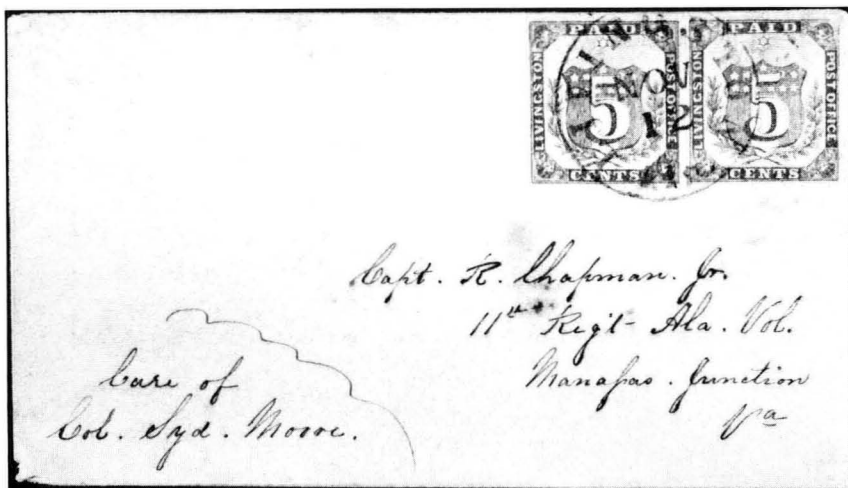 PAID PAID
LIVINGSTON 5 POST OFFICE LIVINGSTON 5 POST OFFICE
CENTS CENTS
NOV
12
Capt. R. Chapman. Jr.
11th Reg't Ala. Vol.
Manaſsas. Junction
Va
Care of
Col. Syd. Moore.